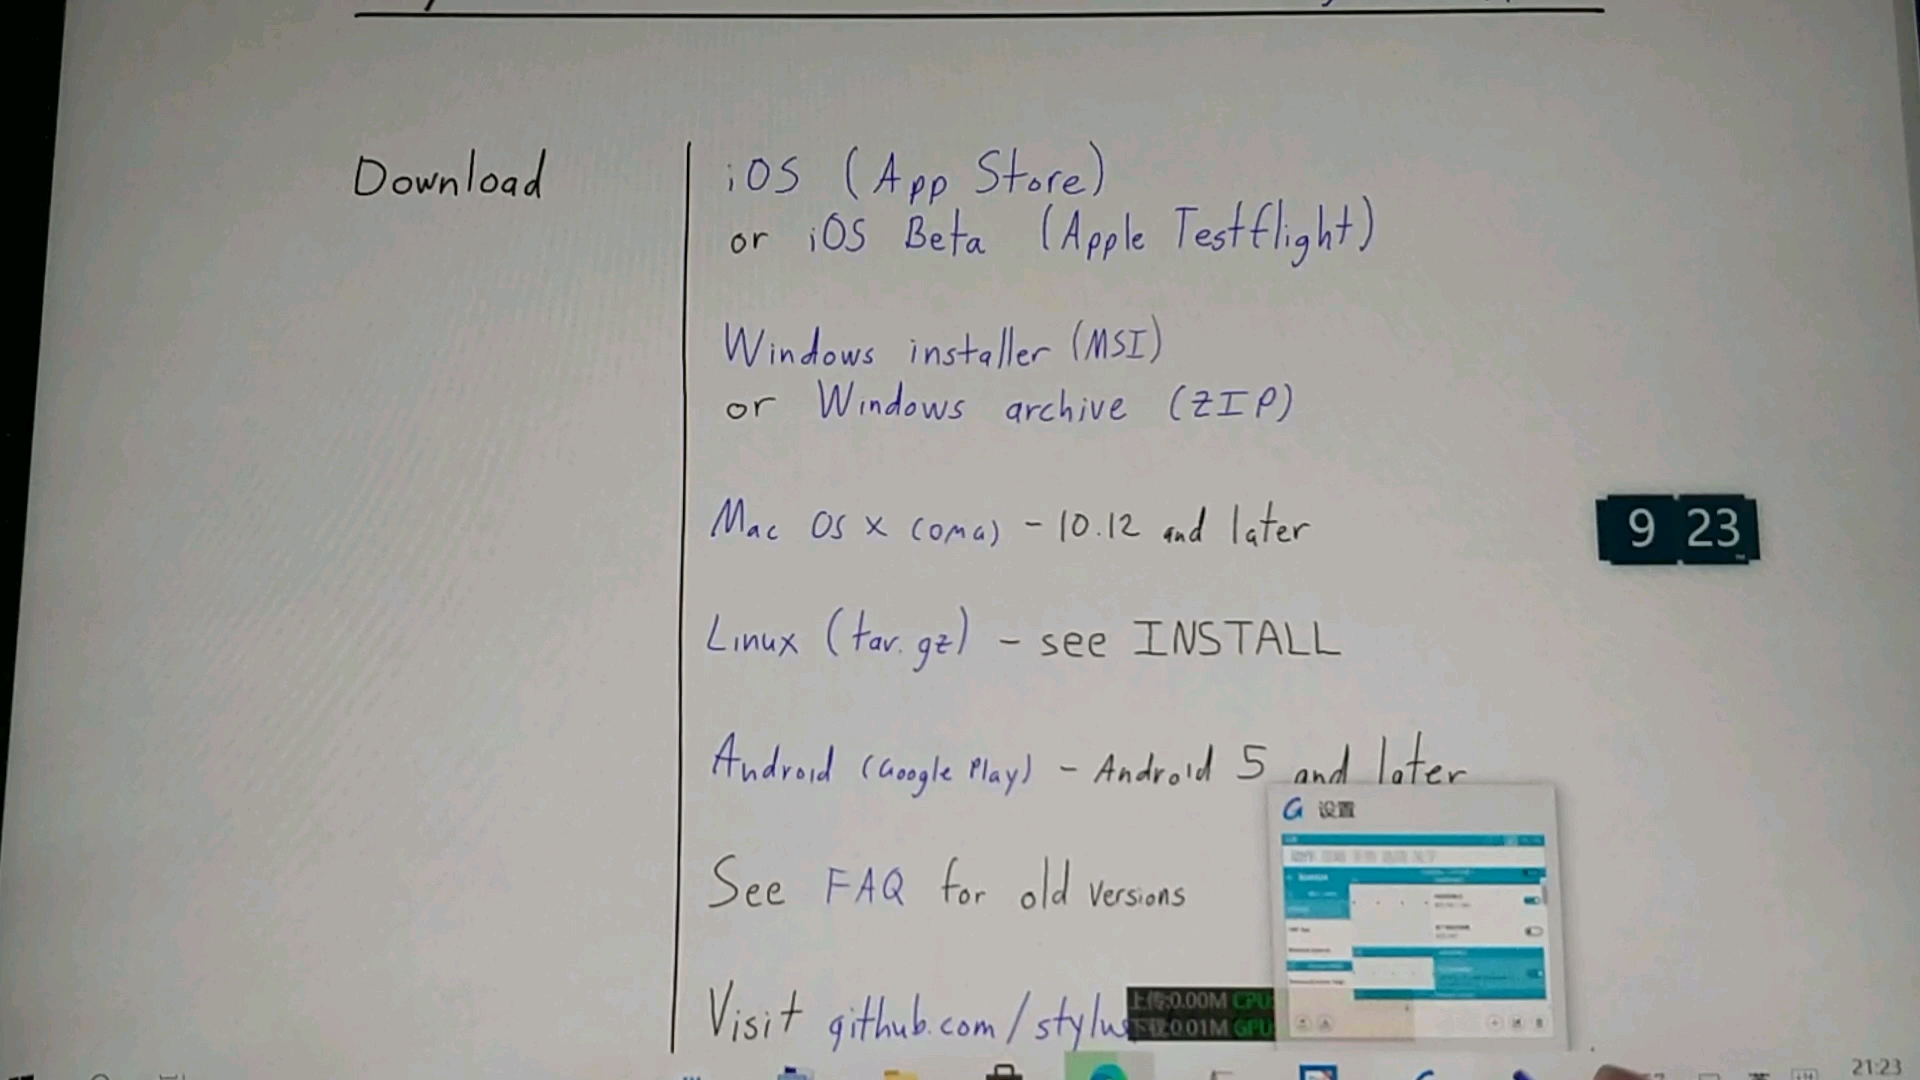 Download
iOS (App Store)
or iOS Beta (Apple Testflight)
Windows installer (MSI)
or Windows archive (ZIP)
Mac OS X (DMG) - 10.12 and later
Linux (tar.gz) - see INSTALL
Android (Google Play) - Android 5 and later
See FAQ for old versions
Visit github.com/stylus
9 23
设置
上传:0.00M CPU:
下载:0.01M GPU:
21:23